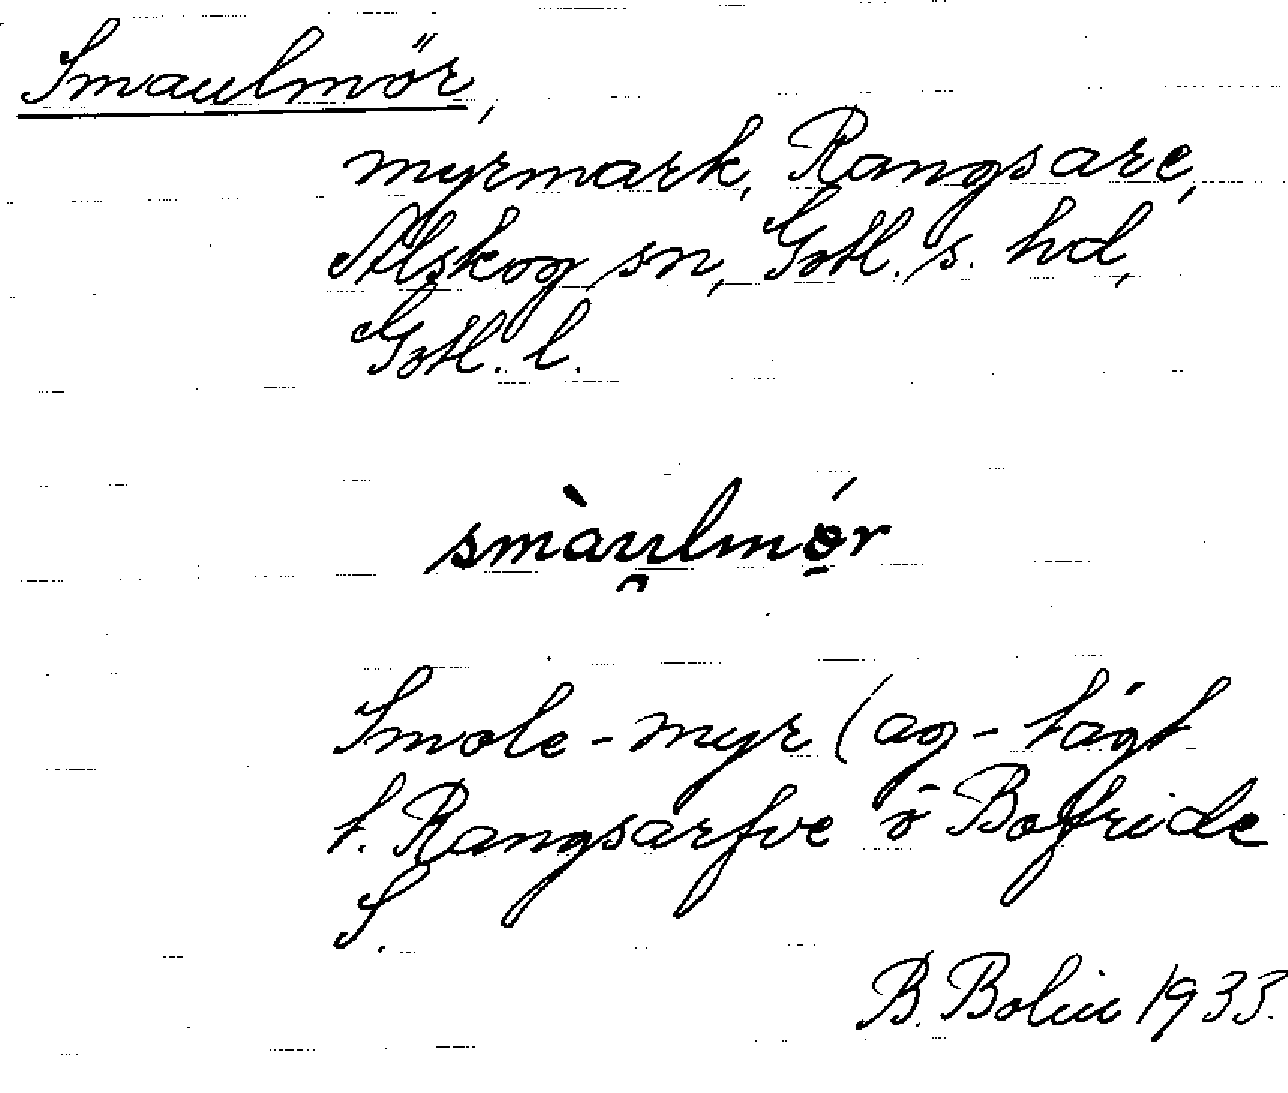 Smaulmör,
myrmark, Rangsare,
Alskog sn, Gotl. s. hd,
Gotl. l.
smàu̯lmó̱r
Smole-myr (ag-tägt
t. Rangsarfve o Bofride
S.
B. Bolin 1933.